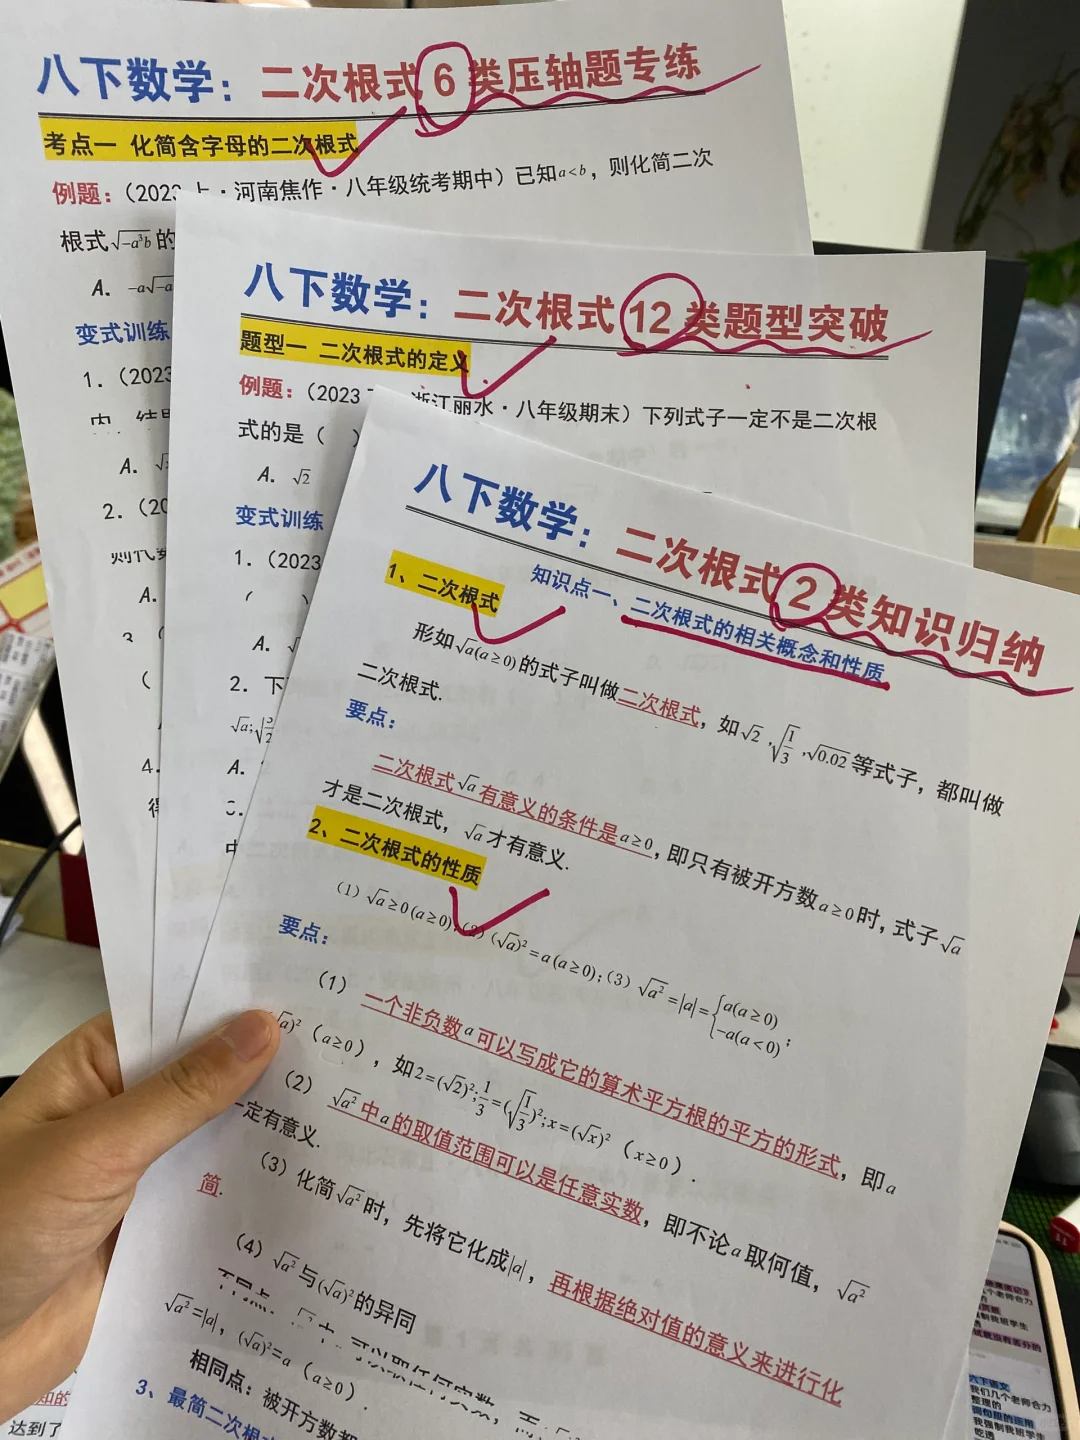 八下数学：二次根式6类压轴题专练
考点一 化简含字母的二次根式
例题：（2023上·河南焦作·八年级统考期中）已知a<b，则化简二次
根式√(-a³b)的
A. -a√-a
变式训练
1.（2023
A. √
2.（20
A.
3
（
4.
得
八下数学：二次根式12类题型突破
题型一 二次根式的定义
例题：（2023 浙江丽水·八年级期末）下列式子一定不是二次根
式的是（ ）
A. √2
变式训练
1.（2023
（ ）
A. √
2. 下
√a;
A.
中
八下数学：二次根式2类知识归纳
知识点一、二次根式的相关概念和性质
1、二次根式
形如√a(a≥0)的式子叫做二次根式，如√2,√(1/3),√0.02等式子，都叫做
二次根式.
要点：
二次根式√a有意义的条件是a≥0，即只有被开方数a≥0时，式子√a
才是二次根式，√a才有意义.
2、二次根式的性质
（1）√a≥0(a≥0)；（2）(√a)²=a(a≥0)；（3）√a²=|a|={a(a≥0) -a(a<0)；
要点：
（1）一个非负数a可以写成它的算术平方根的平方的形式，即a
√a)²（a≥0），如2=(√2)²;1/3=(√(1/3))²;x=(√x)²（x≥0）.
（2）√a²中a的取值范围可以是任意实数，即不论a取何值，√a²
一定有意义.
（3）化简√a²时，先将它化成|a|，再根据绝对值的意义来进行化
简.
（4）√a²与(√a)²的异同
√a²=|a|，(√a)²=a（a≥0）.
相同点：被开方数都
3、最简二次根
达到了
我们几个老师合力
整理的
我强制我班学生
吃透